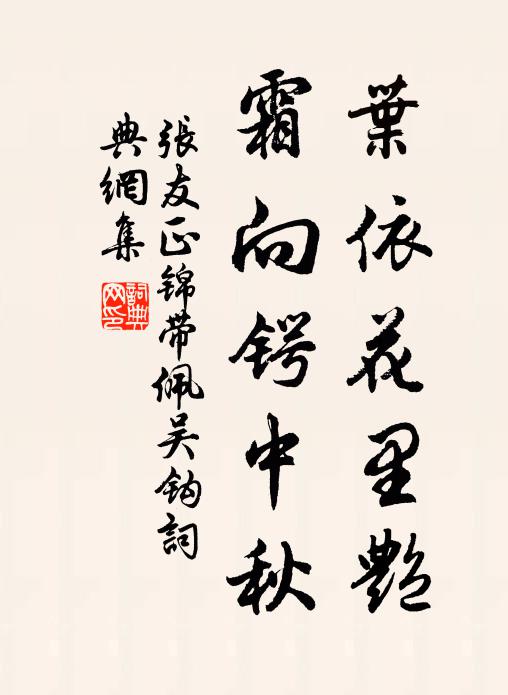 葉依花里艷
霜向鍔中秋
張友正錦帶佩吳鈎詞
典網集
詞典
网印